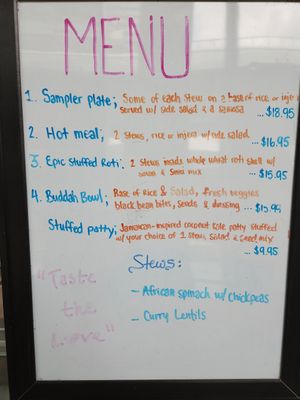 MENU
1. Sampler plate; Some of each stew on a base of rice or injera
served w/ side salad & a samosa
... $18.95
2. Hot meal; 2 stews, rice or injera w/ side salad
... $16.95
3. Epic Stuffed Roti; 2 stews inside whole wheat roti shell w/
salad & seed mix
... $15.95
4. Buddah Bowl; Base of Rice & Salad, fresh veggies
black bean bites, seeds & dressing ... $15.95
Stuffed patty; Jamaican-inspired coconut kale patty stuffed
w/ your choice of 1 stew, salad & seed mix
... $9.95
Stews:
"Taste
the
Love"
- African spinach w/ chickpeas
- Curry Lentils